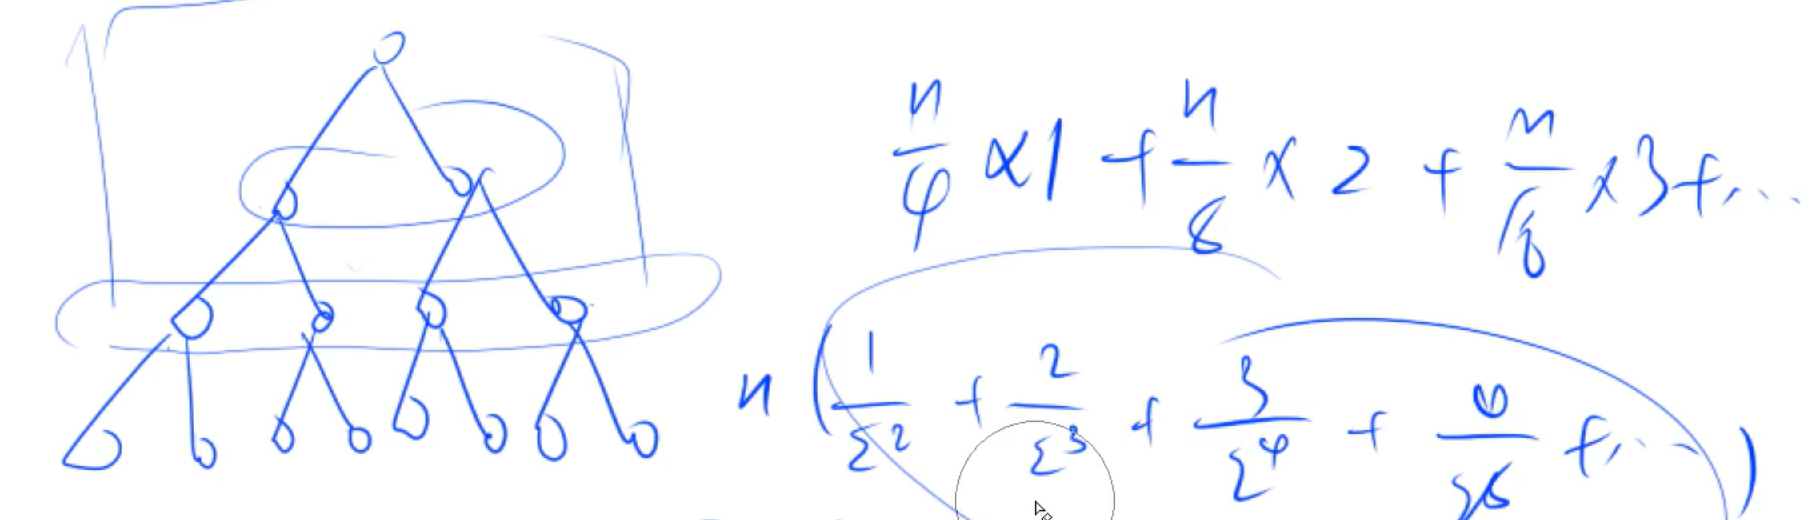 n/4 ×1 + n/8 × 2 + n/16 ×3+...
n ( 1/2^2 + 2/2^3 + 3/2^4 + 4/2^5 +... )